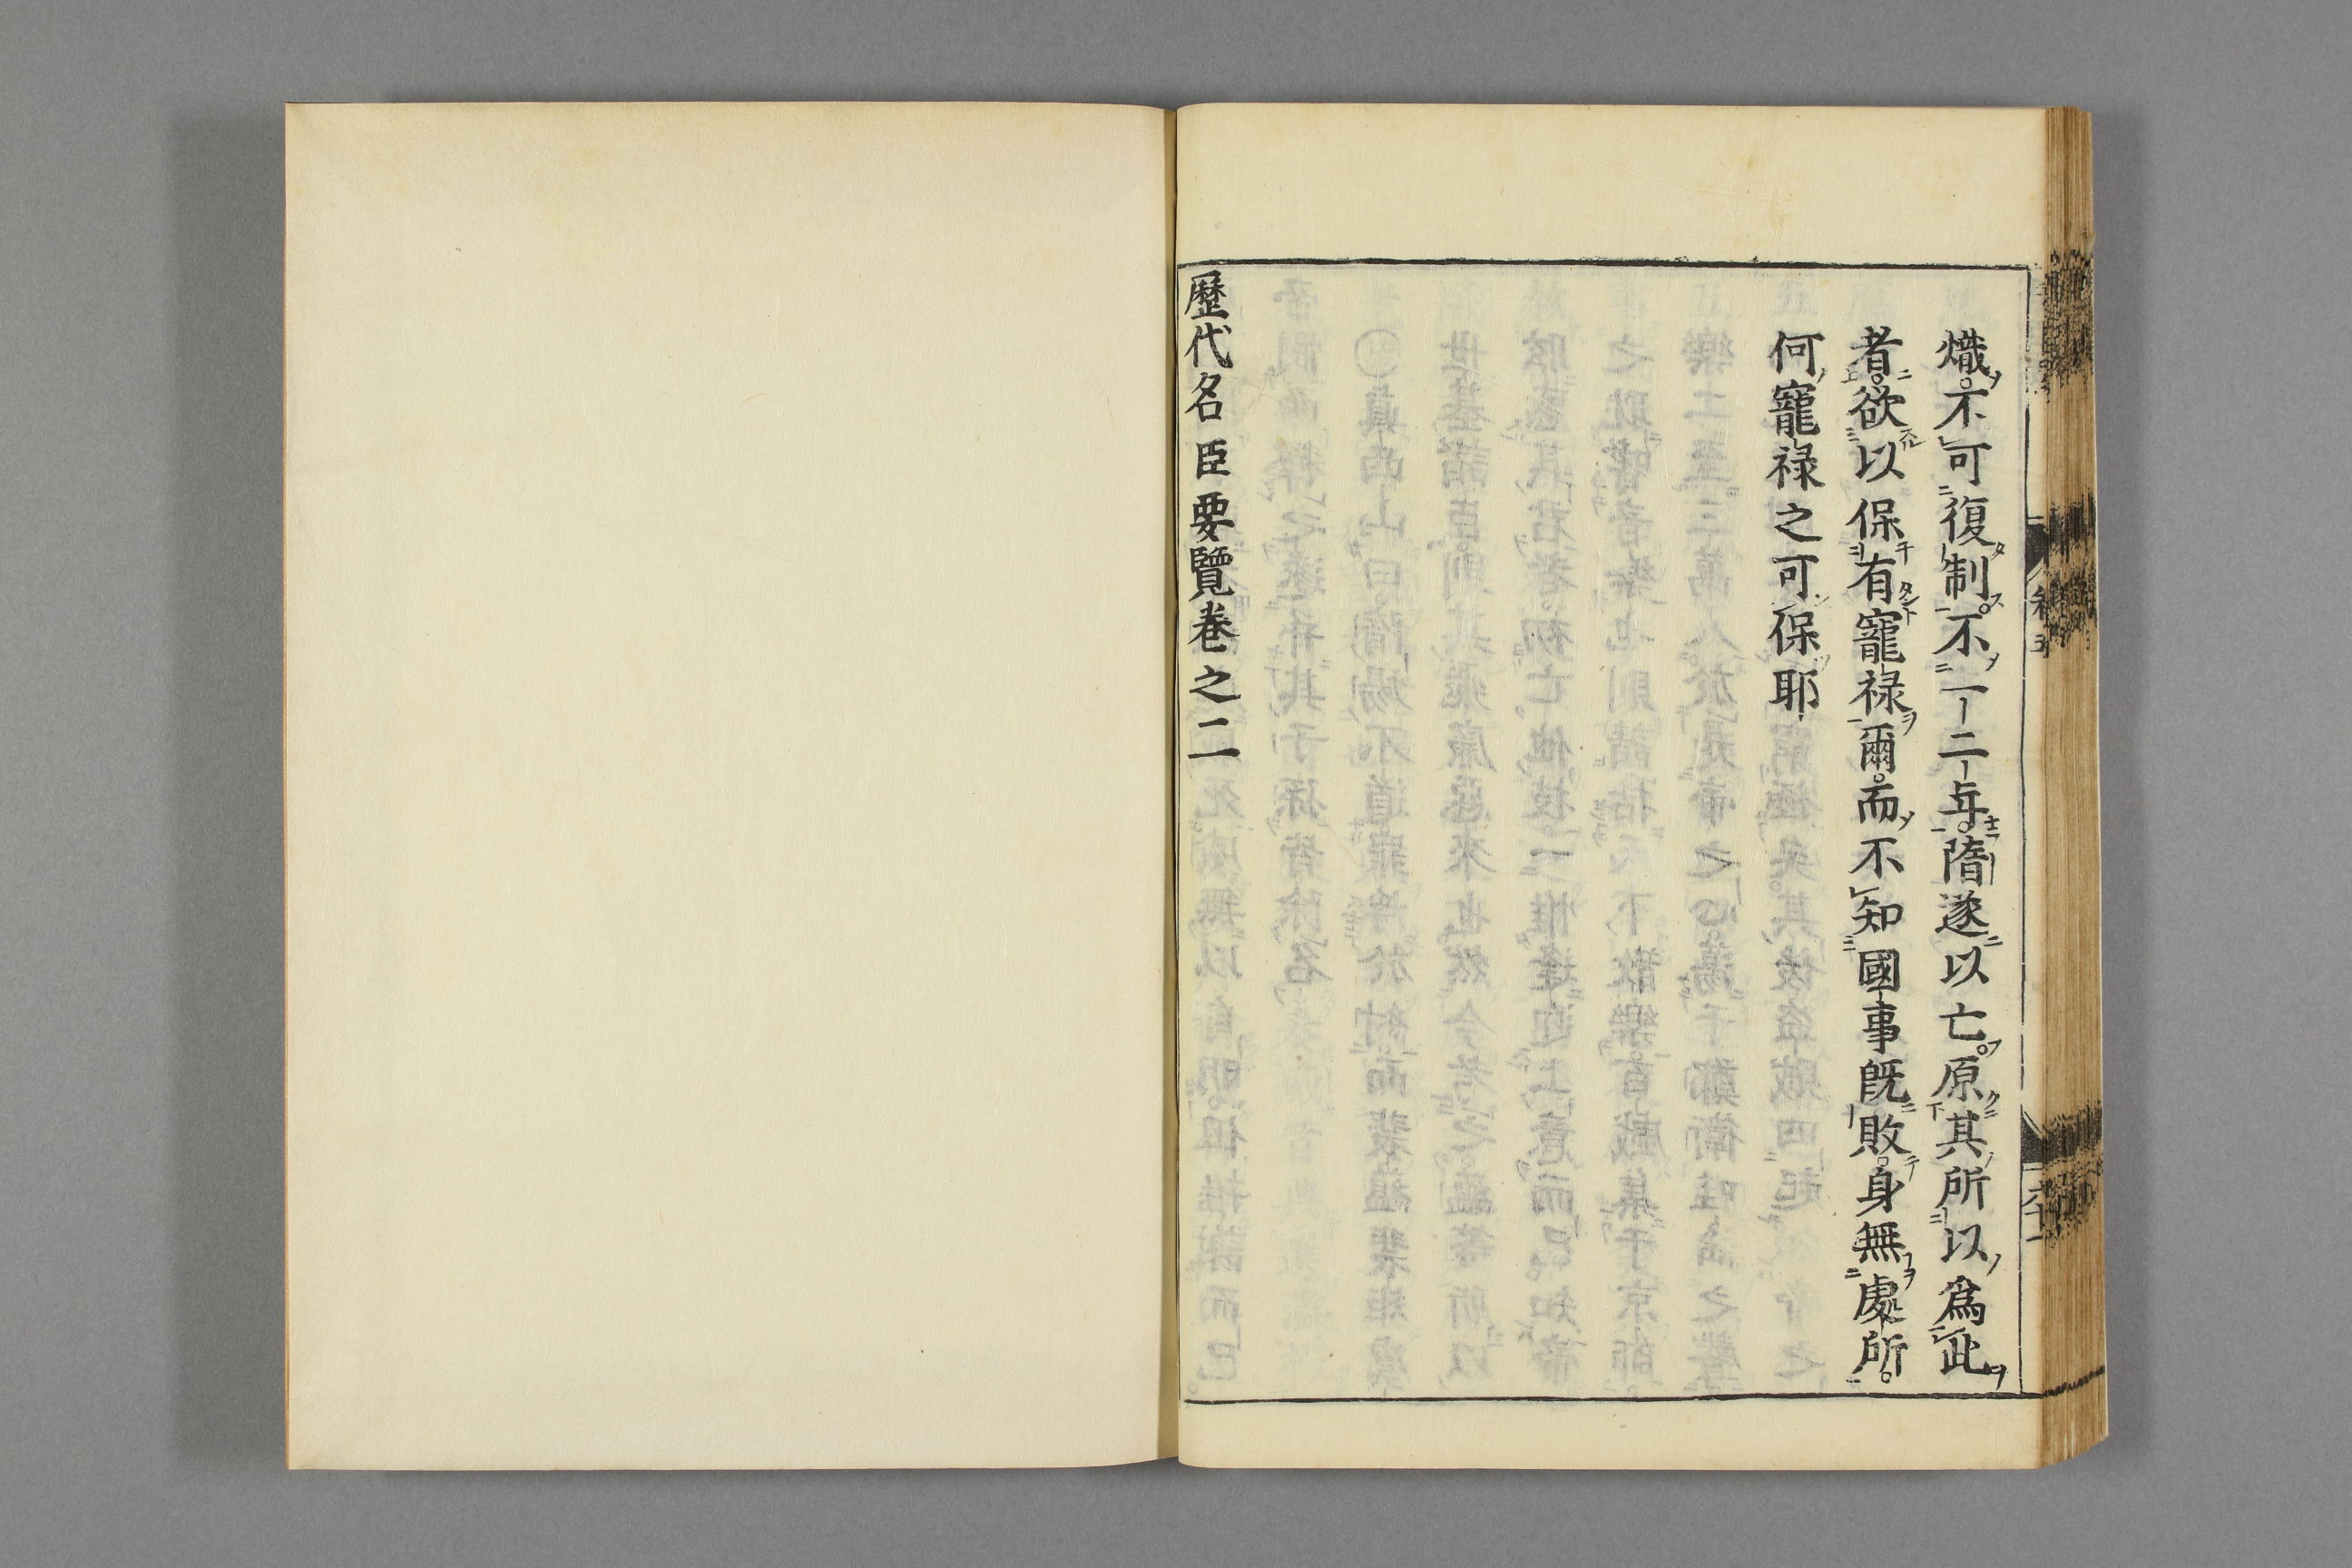 熾不可復制不一二年隋遂以亡原其所以爲此
者欲以保有寵禄爾而不知國事既敗身無處所
何寵禄之可保耶
歷代名臣要覽卷之二